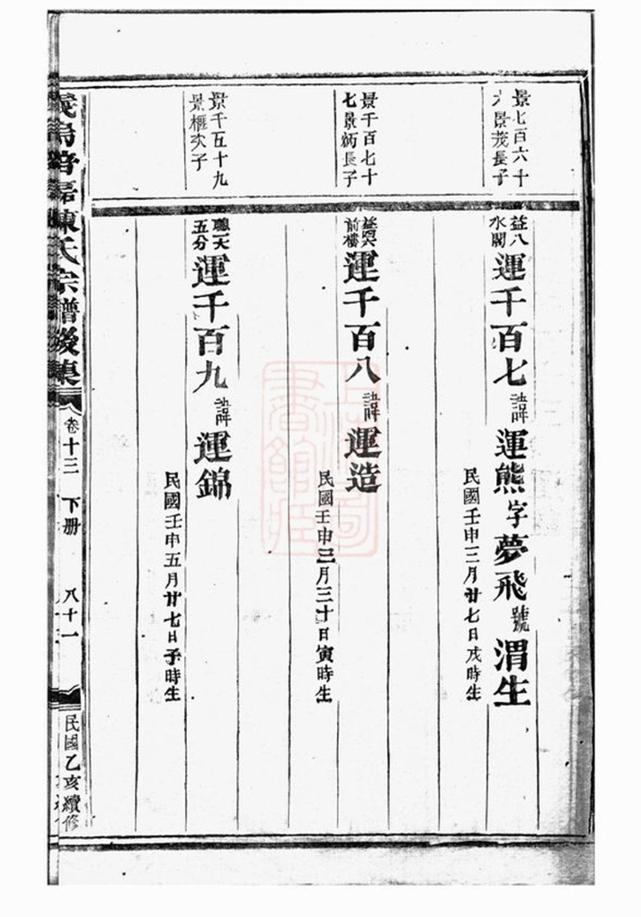 景七百六十
六景茂長子
益八
水閣
運千百七諱運熊字夢飛號渭生
民國壬申三月廿七日戌時生
景千百七十
七景炳長子
前樓
運千百八諱運造
民國壬申三月三十日寅時生
景千百五十九
景樞次子
五分
運千百九諱運錦
民國壬申五月廿七日子時生
陳氏宗譜後集
卷十三
下册
八十一
民國乙亥續修